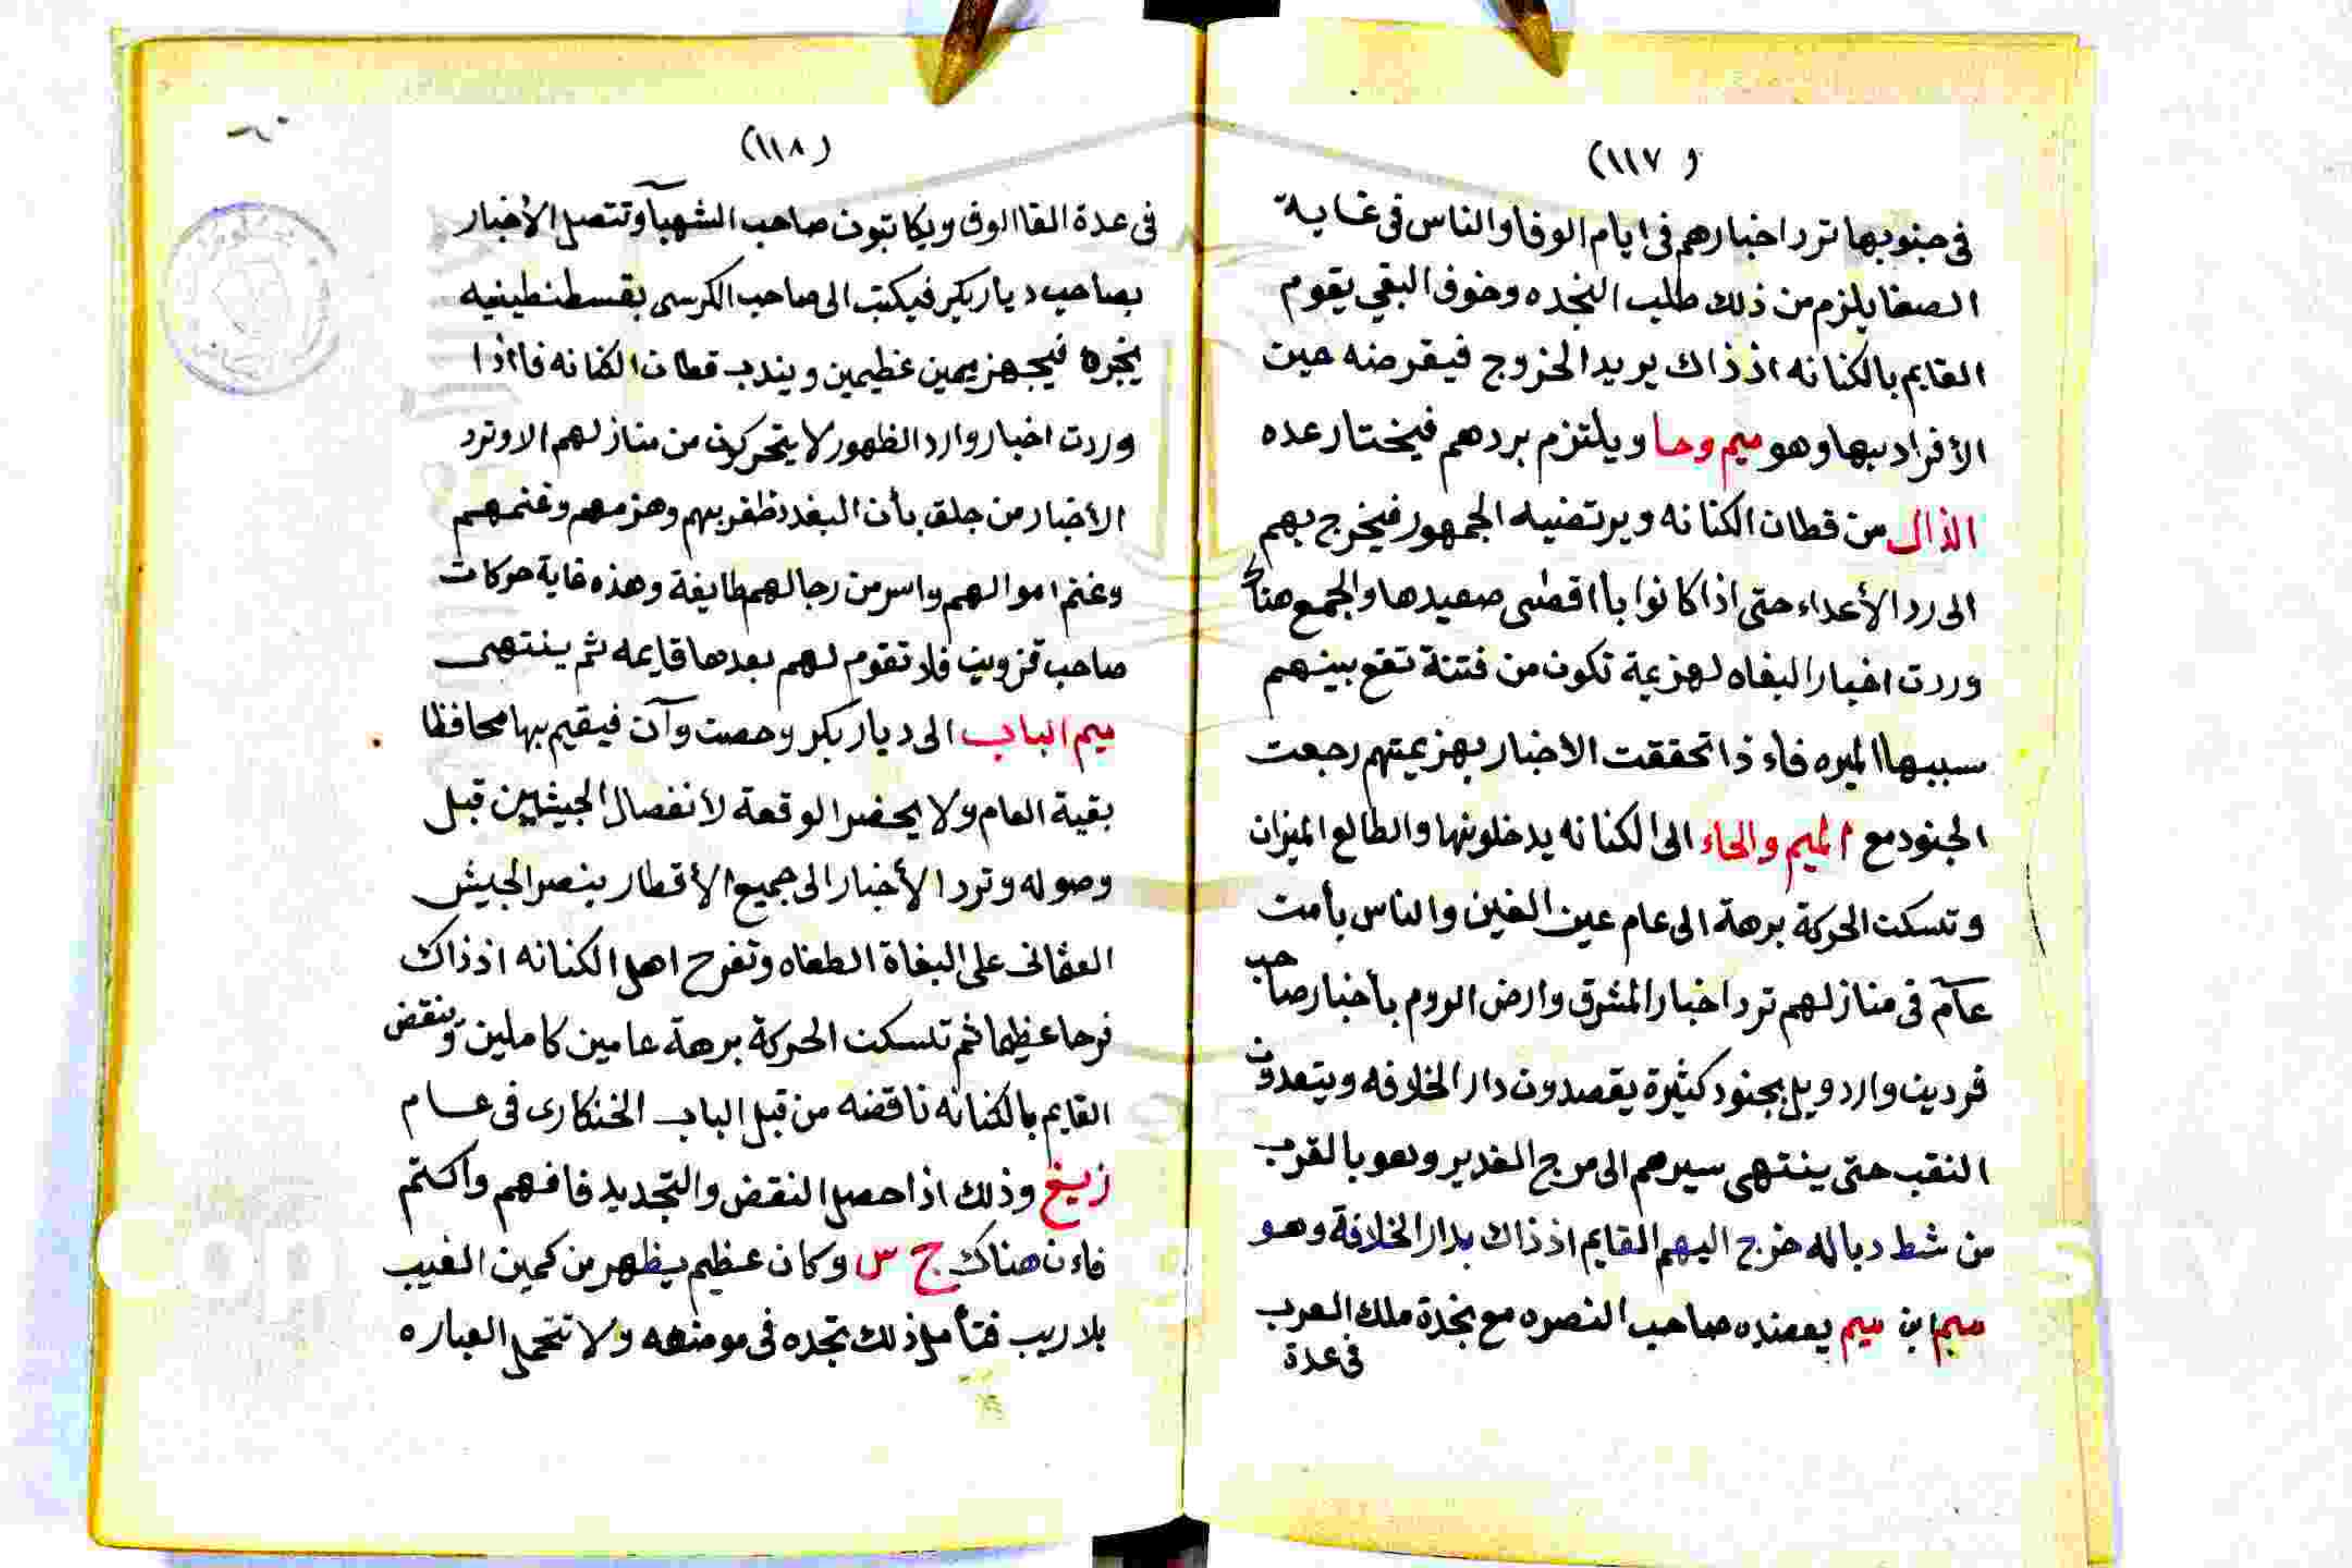 (١١٧)
في جنوبها ترد اخبارهم في ايام الوفا والناس في غاية
الصفا يلزم من ذلك طلب النجده وخوف البقي يقوم
القايم بالكنانه اذ ذاك يريد الخروج فيقرضه حين
الأفراد بيها وهو ميم وحا ويلتزم بردهم فيختار عده
الذال من قطان الكنانه ويرتضيه الجمهور فيخرج بهم
الى رد الأعداء حتى اذا كانوا باا قطى صعيدها والجمع هناك
وردت اخبار البغاه لهزيمة تكون من فتنة تقع بينهم
سببها الميره فاء ذا تحققت الاخبار بهزيمتهم رجعت
الجنود مع الميم والحاء الى الكنانه يدخلونها والطالع الميزان
وتسكت الحركة برهة الى عام عين الغين والناس بأمت
عآم في منازلهم ترد اخبار المشرق وارض الروم بأخبار صاحب
قردين واردويل بجنود كثيرة يقصدون دار الخلافه ويتعدون
النقب حتى ينتهى سيرهم الى مرج الغدير وهو بالقرب
من شط دباله خرج اليهم القايم اذ ذاك بدار الخلافة وهو
ميم ابن ميم يعضده صاحب النصره مع نجدة ملك العرب
في عدة
(١١٨)
في عدة القا الوف ويكاتبون صاحب الشهبآ وتتصل الأخبار
بصاحب ديار بكر فيكتب الى صاحب الكرسى بقسطنطينيه
يخبره فيجهز يمين عظيمين ويندب قطان الكنانه فااذا
وردت اخبار وارد الظهور لا يتحركون من منازلهم الا وترد
الأخبار من جلق بأن البغدد ظفر بهم وهزمهم وغنمهم
وغنم اموالهم واسر من رجالهم طايفة وهذه غاية حركات
صاحب قزوين فلا تقوم لهم بعدها قايمه ثم ينتهى
ميم الباب الى ديار بكر وحصت وآن فيقيم بها محافظا
بقية العام ولا يحضر الوقعة لأنفصال الجيشين قبل
وصوله وترد الأخبار الى جميع الأقطار بنصر الجيش
العثمانى على البغاة الطغاه وتفرح اهل الكنانه اذ ذاك
فرحا عظيما ثم تسكت الحركة برهة عامين كاملين وينقض
القايم بالكنانه ناقضه من قبل الباب الخنكارى في عام
زيغ وذلك اذا حصل النقض والتجديد فافهم واكتم
فاءن هناك ج س وكان عظيم يظهر من كمين الغيب
بلا ريب فتأمل ذلك تجده في موضعه ولا تتحمل العباره